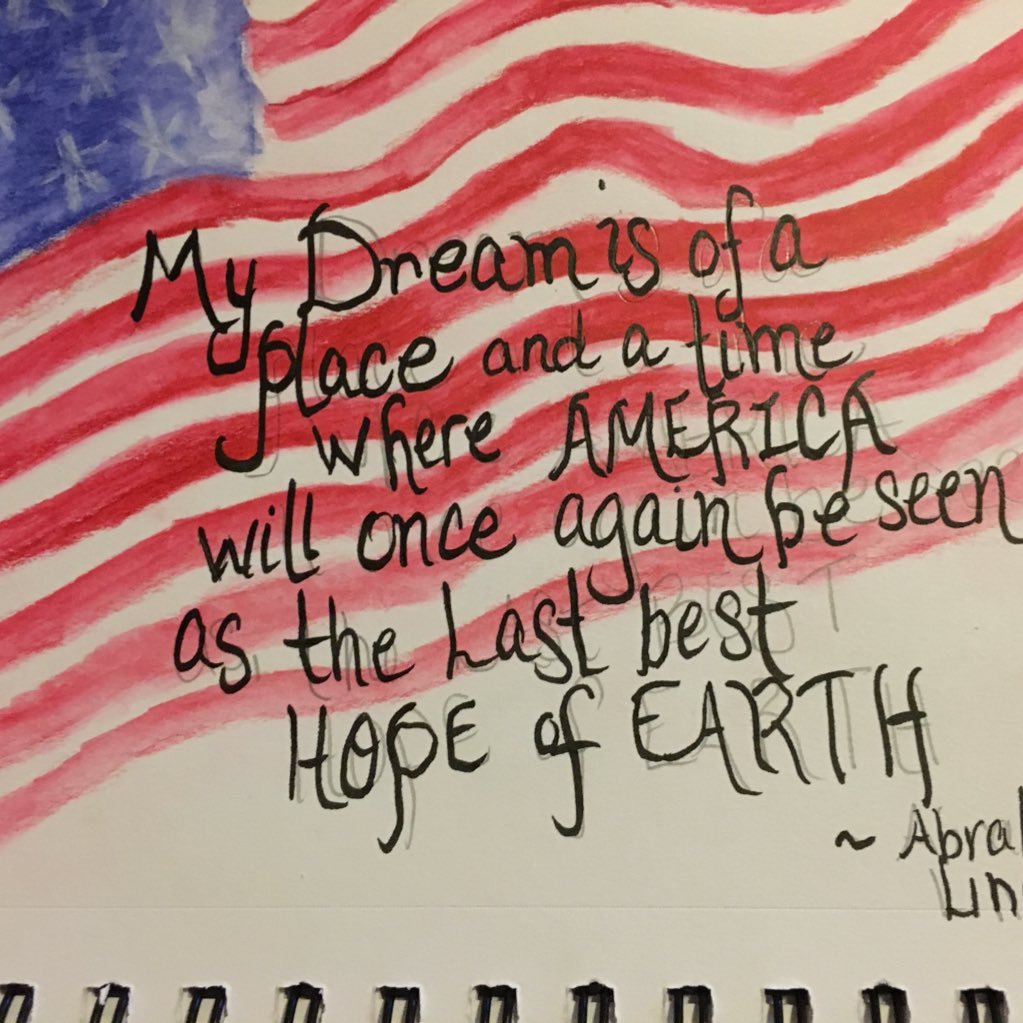 My Dream is of a
place and a time
where AMERICA
will once again be seen
as the Last best
HOPE of EARTH
~ Abra
Lin